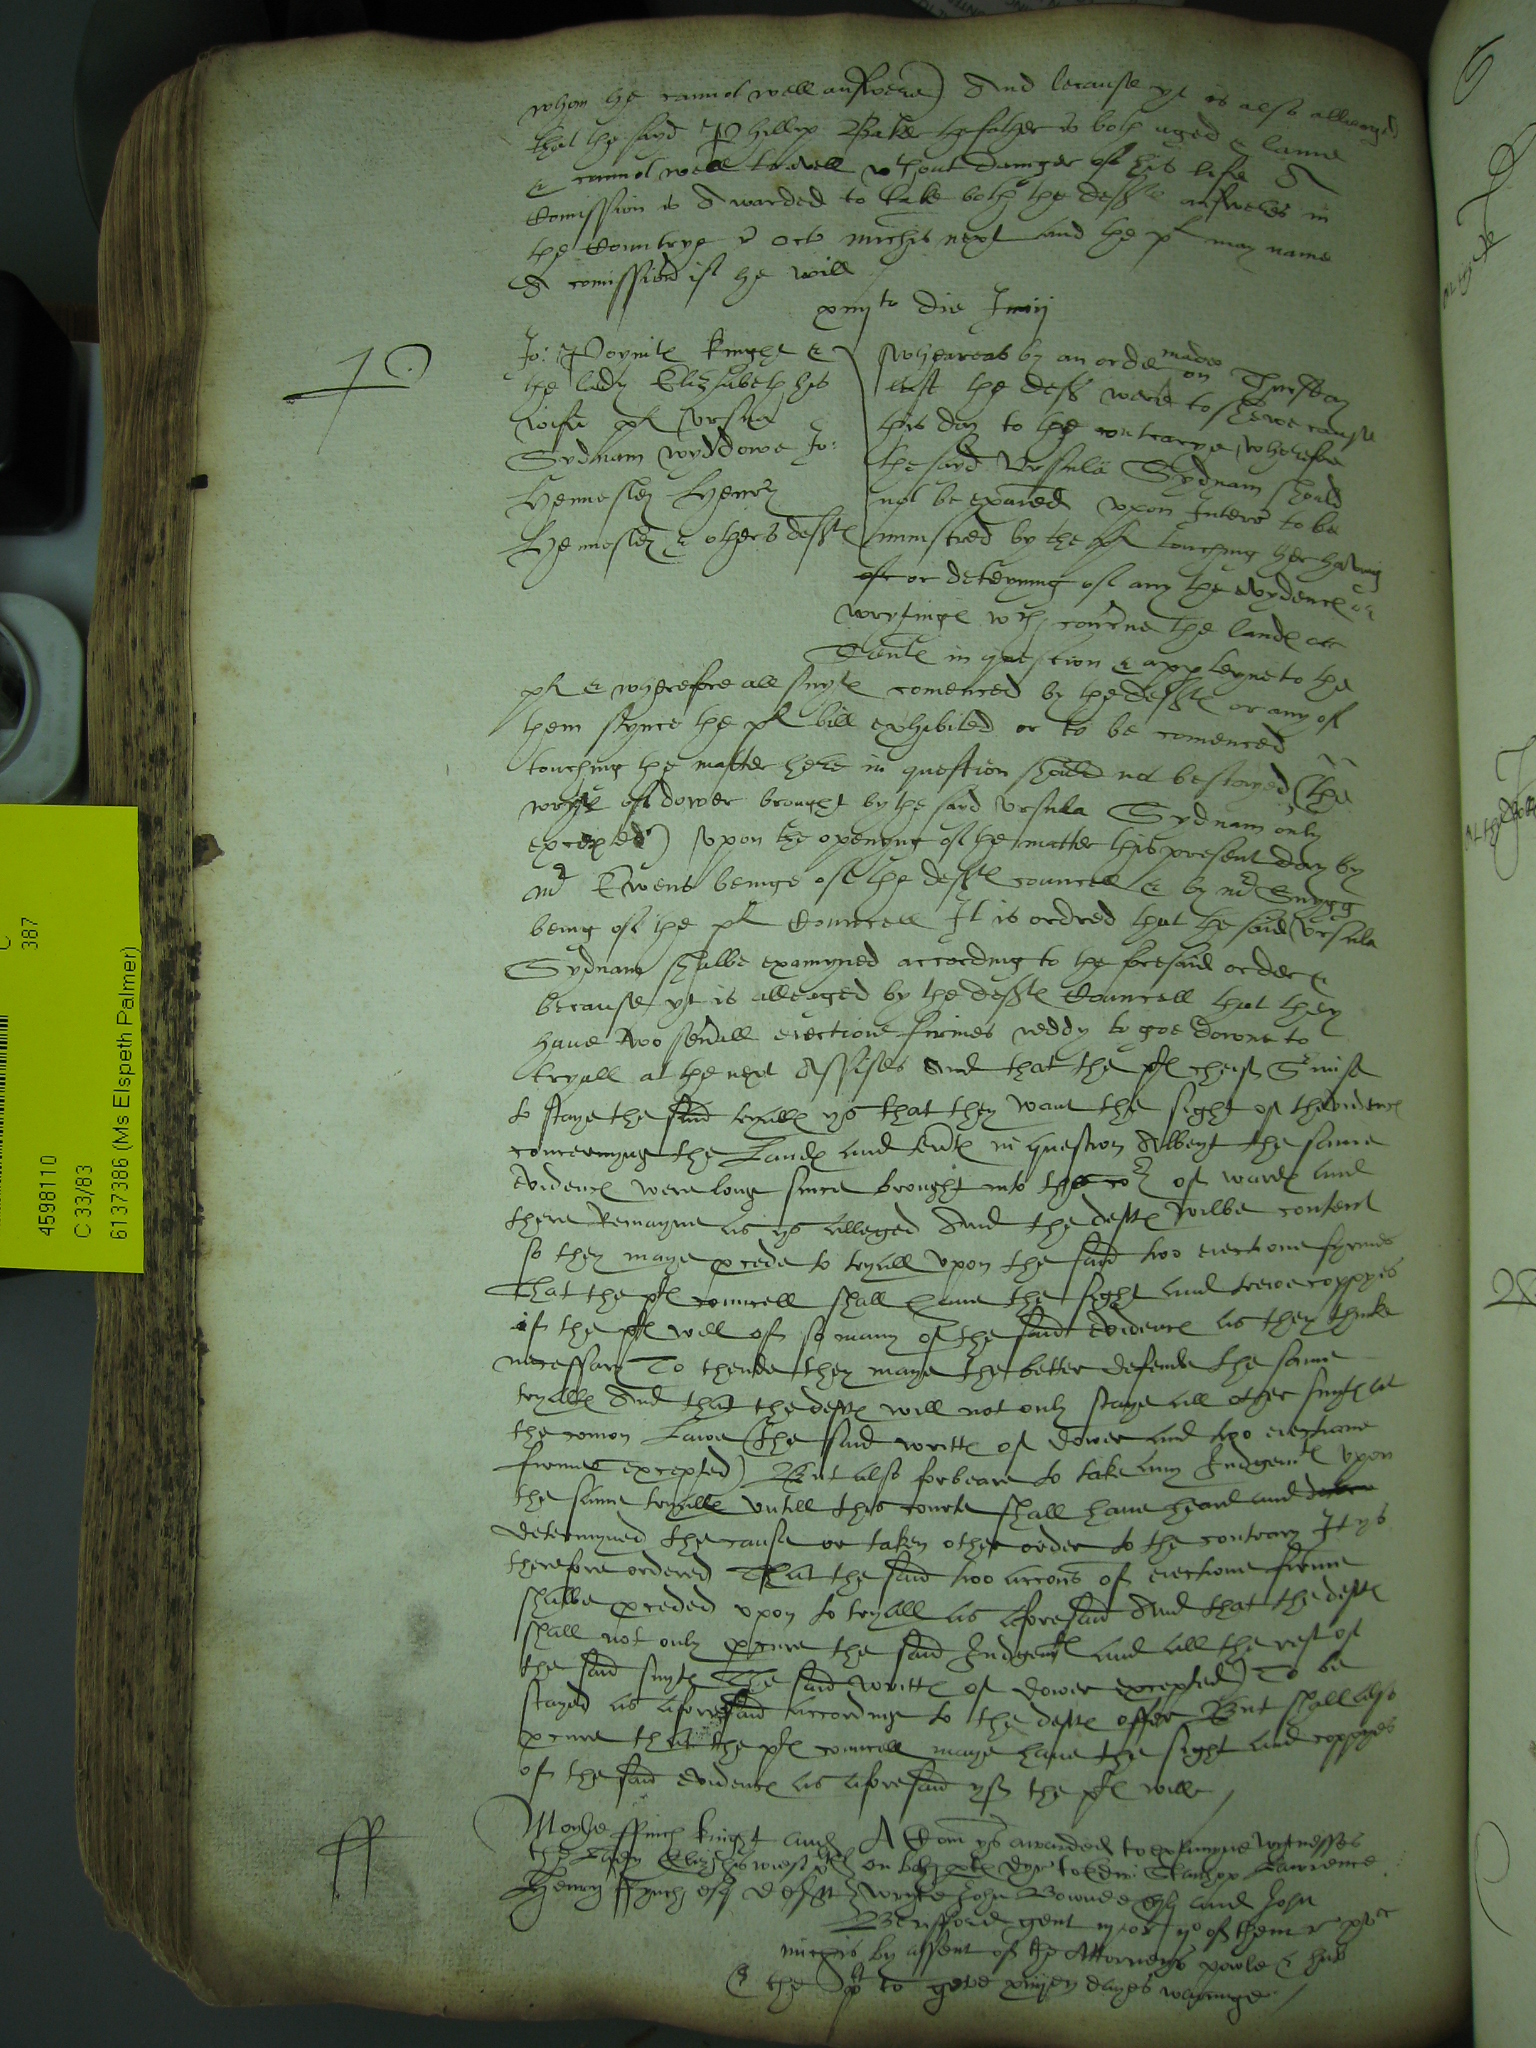 whom he cannot well answere) And because yt is also alleaged
that the sayd Phillip Baker the father is both aged & lame
& cannot well travell wthout daunger of his life A
Comission is Awarded to take both the defts answeres in
the Countrye r Octo michis next and the pl may name
A comissioner if he will
xiiijto die Junij
P
Jo: Poyntz knight &
the lady Elizabeth his
wife pl Vrsula
Sydnam wyddowe Jo:
Hennesley Henry
Hennesley & others defts
Whereas by an order made on Thursday
last the deft were to shewe cause
this day to the contrarye wherefore
the sayd Vrsula Sydnam should
not be examed vpon Interr to be
ministred by the pl touching her having
or deteyning of any the evydence or
wrytinge wch concrne the lande or
Tente in question & apperteyne to the
pl & wherefore all suyte comenced by the defte or any of
them synce the pl bill exhibited or to be comenced
touching the matter here in question should not be stayed (the
wryte of dower brought by the sayd Vrsula Sydnam only
excepted) Vpon the openyng of the matter this present day by
mr Ewens beinge of the defte councell & by mr Snygg
being of the pl Councell It is ordred that the said Vrsula
Sydnam shalbe examyned according to the foresaid order &
because yt is alleaged by the defte Councell that they
haue two seuall eiectione firmes reddy to goe downe to
tryall at the next Assises And that the pl cheif Surmise
to staye the said tryalle ys that they want the sight of thevidence
concernyng the Lande and tente in question Albeyt the same
Evidence were long since brought into the cort of warde and
there Remayne as ys alleged And the defte wilbe content
so they maye pcede to tryall vpon the said two eiectione fyrmes
That the pl councell shall haue the sight and trewe coppyes
if the pl will of so many of the said Evidence as they thinke
necessary To thende they maye the better defende the same
tryalle And that the defte will not only staye all other suyte at
the comon Lawe (the said writte of dower and two eiectione
firmes excepted) But also forbeare to take any Iudgemte vpon
the same tryalle vntill this courte shall haue heard and
determyned the cause or taken other order to the contrary It ys
therefore ordered That the said two accons of eiectione firme
shalbe pceded vpon to tryall as aforesaid And that the defte
shall not only pcure the said Iudgemte and all the rest of
the said suyte (The said writte of dower excepted) To be
stayed as aforesaid according to the defte offer But shall also
pcure that the pl councell maye haue the sight and coppyes
of the said Evidence as aforesaid yf the pl will
ff
Moyle ffinch knight and
the Lady Eliz his wief pl
Henry ffynch esq deft
A Com ys awarded to examyne wytnesses
on both pte dyr to Edw: Stanhop Lawrence
wryte John Bownde esq and John
Beresford gent iij or ij of them r
michis by assent of the Attorneys powle & hub
& the pl to geve xiiijen dayes warninge
4598110
C 33/83
6137386 (Ms Elspeth Palmer)
387